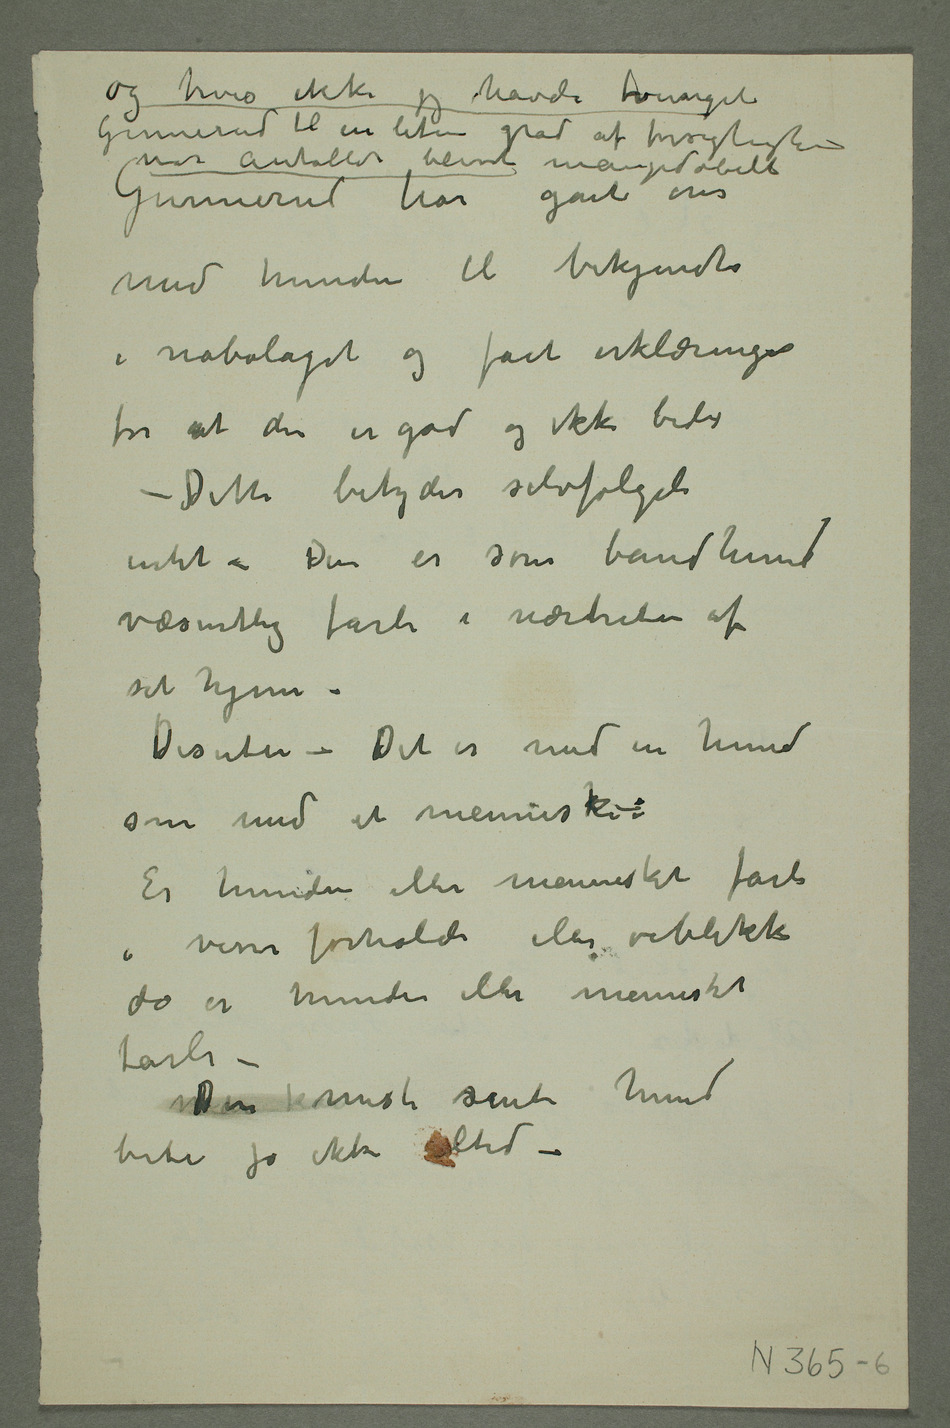 og hvis ikke jeg havde tvunget
Gunnerud til en liten grad af forsigtighe
var antallet blevet mangedobelt
Gunnerud har gåt om
med hunden til bekjendte
i nabolaget og fåt erklæringer
for at den er god og ikke bider
– Dette betyder selvfølgeli
intet – Den er som båndhund
væsentlig farli i nærheten af
sit hjem –
Desuten – Det er med en hund
som med et menneske:
Er hunden eller mennesket farli
i visse forholde eller øieblikke
da er hunden eller mennesket
farli –
Den mest sinte hund
biter jo ikke altid –
N 365-6